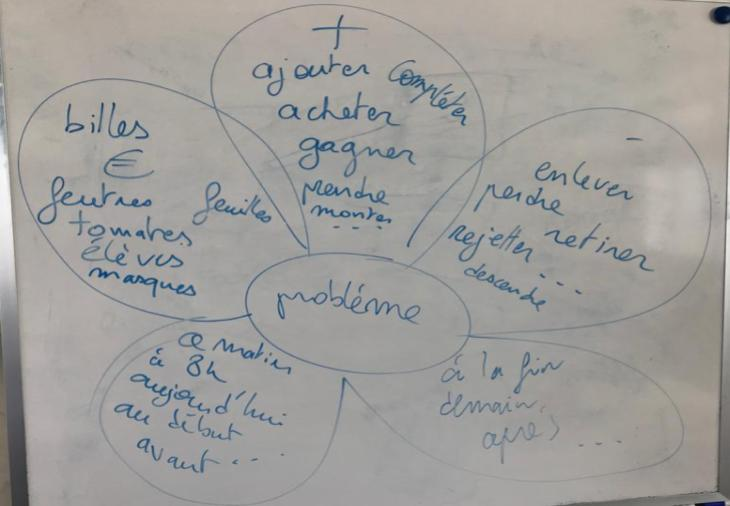 +
ajouter compléter
acheter
gagner
prendre
monter
...
billes
€
feutres feuilles
tomates
élèves
masques
-
enlever
perdre
retirer
rejetter ...
descendre
problème
ce matin
à 8h
aujourd'hui
au début
avant ...
à la fin
demain,
après ...